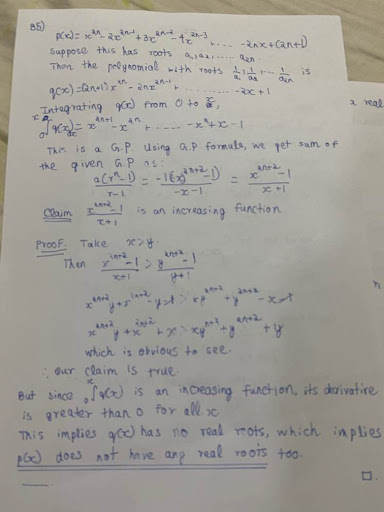 85)
p(x) = x^2n - 2x^2n-1 + 3x^2n-2 - 4x^2n-3 + ..... - 2nx + (2n+1)
suppose this has roots a₁, a₂, ..... a₂ₙ
Then the polynomial with roots 1/a₁, 1/a₂, .... 1/a₂ₙ is
q(x) = (2n+1)x^2n - 2nx^2n-1 + ......... - 2x + 1
Integrating q(x) from 0 to x,
∫₀^x q(x) dx = x^2n+1 - x^2n + ..... - x² + x - 1
This is a G.P. Using G.P formula, we get sum of
the given G.P as:
a(r^n - 1)/r-1 = -1((-x)^2n+2 - 1)/-x-1 = x^2n+2 - 1/x+1
Claim x^2n+2 - 1/x+1 is an increasing function
Proof. Take x > y.
Then x^2n+2 - 1/x+1 > y^2n+2 - 1/y+1
x^2n+2 y + x^2n+2 - y - 1 > xy^2n+2 + y^2n+2 - x - 1
x^2n+2 y + x^2n+2 + x > xy^2n+2 + y^2n+2 + y
which is obvious to see.
∴ our claim is true.
But since ∫₀^x q(x) is an increasing function, its derivative
is greater than 0 for all x.
This implies q(x) has no real roots, which implies
p(x) does not have any real roots too.
□.
2 real
n